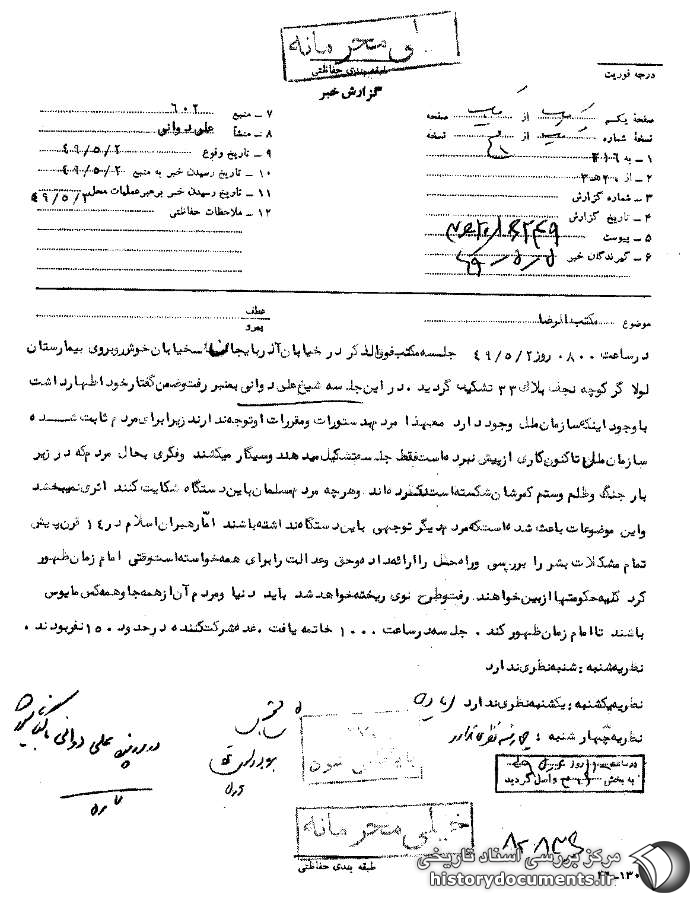 خیلی محرمانه
طبقه بندی حفاظتی
گزارش خبر
درجه فوریت
صفحه یکم از یک صفحه
نسخه شماره یک از نسخه
۱ – به ۳۱۶
۲ – از ۲۰ هـ ۳
۳ – شماره گزارش
۴ – تاریخ گزارش
۵ – پیوست
۶ – گیرندگان خبر
۷ – منبع ۶۰۲
۸ – منشأ علی دوانی
۹ – تاریخ وقوع ۴۹/۵/۲
۱۰ – تاریخ رسیدن خبر به منبع ۴۹/۵/۲
۱۱ – تاریخ رسیدن خبر برهبر عملیات محل ۴۹/۵/۳
۱۲ – ملاحظات حفاظتی
موضوع مکتب الرضا
عطف
پیرو
در ساعت ۰۸۰۰ روز ۴۹/۵/۲ جلسه مکتب فوق الذکر در خیابان آذربایجان خیابان خوش روبروی بیمارستان
لولاگر کوچه نجف پلاک ۳۳ تشکیل گردید . در این جلسه شیخ علی دوانی بمنبر رفت و ضمن گفتار خود اظهار داشت
با وجود اینکه سازمان ملل وجود دارد معهذا مردم بدستورات و مقررات او توجه ندارند زیرا برای مردم ثابت شده
سازمان ملل تاکنون کاری از پیش نبرده است فقط جلسه تشکیل میدهند و سیگار میکشند و فکری بحال مردم که در زیر
بار جنگ و ظلم و ستم کمرشان شکسته است نکرده اند و هر چه مردم مسلمان باین دستگاه شکایت کنند اثری نمیبخشد
و این موضوعات باعث شده است که مردم دیگر توجهی باین دستگاه نداشته باشند اما رهبران اسلام در ۱۴ قرن پیش
تمام مشکلات بشر را بررسی و راه حل را ارائه داده و حق و عدالت را برای همه خواسته است وقتی امام زمان ظهور
کرد کلیه حکومتها از بین خواهند رفت و طرح نوی ریخته خواهد شد باید دنیا و مردم آن از همه جا و همه کس مایوس
باشند تا امام زمان ظهور کند . جلسه در ساعت ۱۰۰۰ خاتمه یافت . عده شرکت کننده در حدود ۱۵۰ نفر بودند .
نظریه شنبه : شنبه نظری ندارد
نظریه یکشنبه : یکشنبه نظری ندارد
نظریه چهارشنبه : چهارشنبه نظری ندارد
در ساعت روز
به بخش واصل گردید
بایگانی شود
در پرونده علی دوانی بایگانی شود
خیلی محرمانه
طبقه بندی حفاظتی
مرکز بررسی اسناد تاریخی
historydocuments.ir